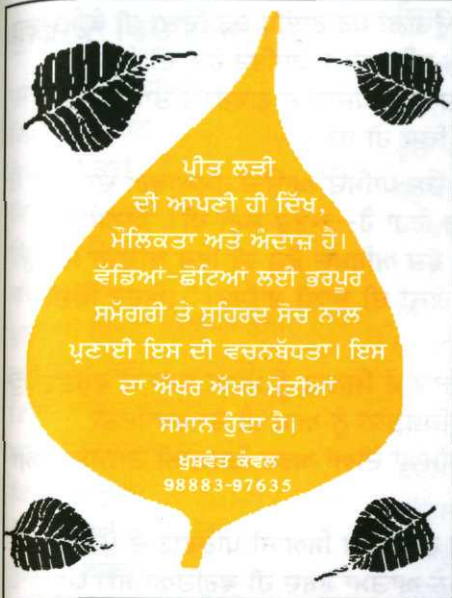 ਪ੍ਰੀਤ ਲੜੀ
ਦੀ ਆਪਣੀ ਹੀ ਦਿੱਖ,
ਮੌਲਿਕਤਾ ਅਤੇ ਅੰਦਾਜ਼ ਹੈ।
ਵੱਡਿਆਂ-ਛੋਟਿਆਂ ਲਈ ਭਰਪੂਰ
ਸਮੱਗਰੀ ਤੇ ਸੁਹਿਰਦ ਸੋਚ ਨਾਲ
ਪ੍ਰਣਾਈ ਇਸ ਦੀ ਵਚਨਬੱਧਤਾ। ਇਸ
ਦਾ ਅੱਖਰ ਅੱਖਰ ਮੋਤੀਆਂ
ਸਮਾਨ ਹੁੰਦਾ ਹੈ।
ਖੁਸ਼ਵੰਤ ਕੰਵਲ
98883-97635